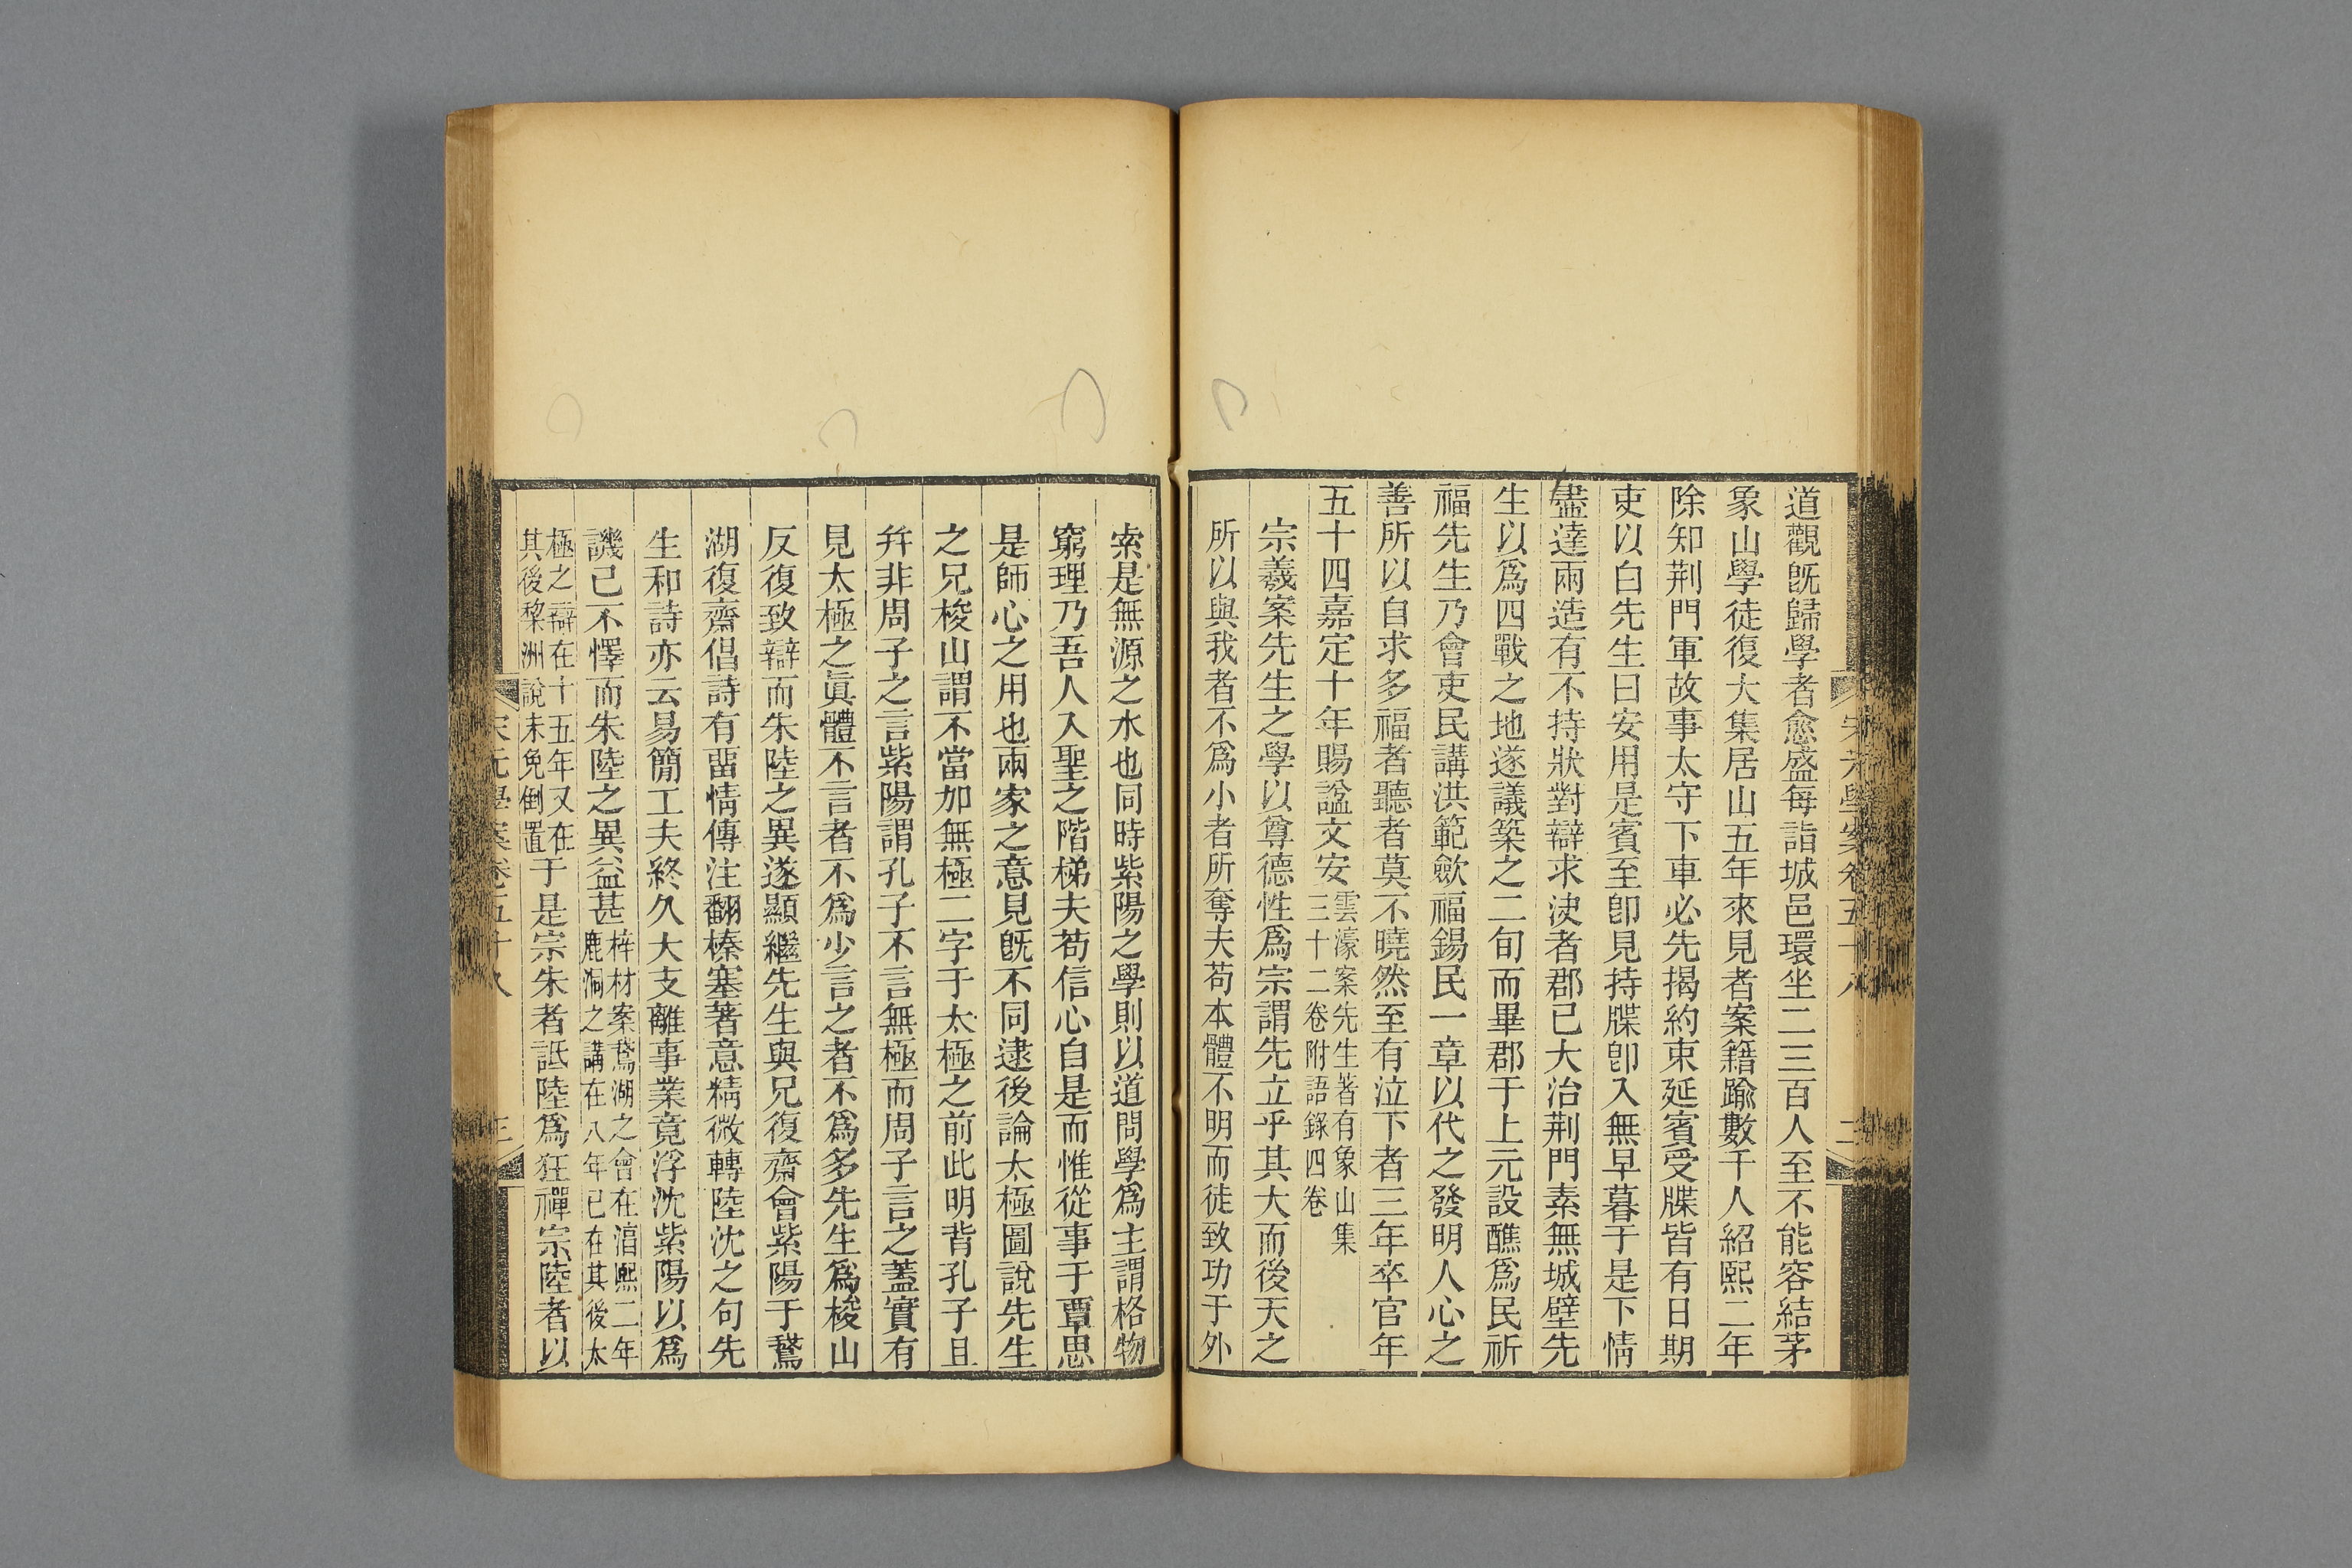 道觀旣歸學者愈盛每詣城邑環坐二三百人至不能容結茅
象山學徒復大集居山五年來見者案籍踰數千人紹熙二年
除知荆門軍故事太守下車必先揭約束延賓受牒皆有日期
吏以白先生曰安用是賓至卽見持牒卽入無早暮于是下情
盡達兩造有不持狀對辯求決者郡已大治荆門素無城壁先
生以爲四戰之地遂議築之二旬而畢郡于上元設醮爲民祈
福先生乃會吏民講洪範歛福錫民一章以代之發明人心之
善所以自求多福者聽者莫不曉然至有泣下者三年卒官年
五十四嘉定十年賜諡文安
雲濠案先生著有象山集
三十二卷附語錄四卷
宗羲案先生之學以尊德性爲宗謂先立乎其大而後天之
所以與我者不爲小者所奪夫苟本體不明而徒致功于外
宋元學案卷五十八
二
索是無源之水也同時紫陽之學則以道問學爲主謂格物
窮理乃吾人入聖之階梯夫苟信心自是而惟從事于覃思
是師心之用也兩家之意見旣不同逮後論太極圖說先生
之兄梭山謂不當加無極二字于太極之前此明背孔子且
幷非周子之言紫陽謂孔子不言無極而周子言之蓋實有
見太極之眞體不言者不爲少言之者不爲多先生爲梭山
反復致辯而朱陸之異遂顯繼先生與兄復齋會紫陽于鵞
湖復齋倡詩有畱情傳注翻榛塞著意精微轉陸沈之句先
生和詩亦云易簡工夫終久大支離事業竟浮沈紫陽以爲
譏己不懌而朱陸之異益甚
梓材案鵞湖之會在淳熙二年
鹿洞之講在八年已在其後太
極之辯在十五年又在
其後黎洲說未免倒置
于是宗朱者詆陸爲狂禪宗陸者以
宋元學案卷五十八
三